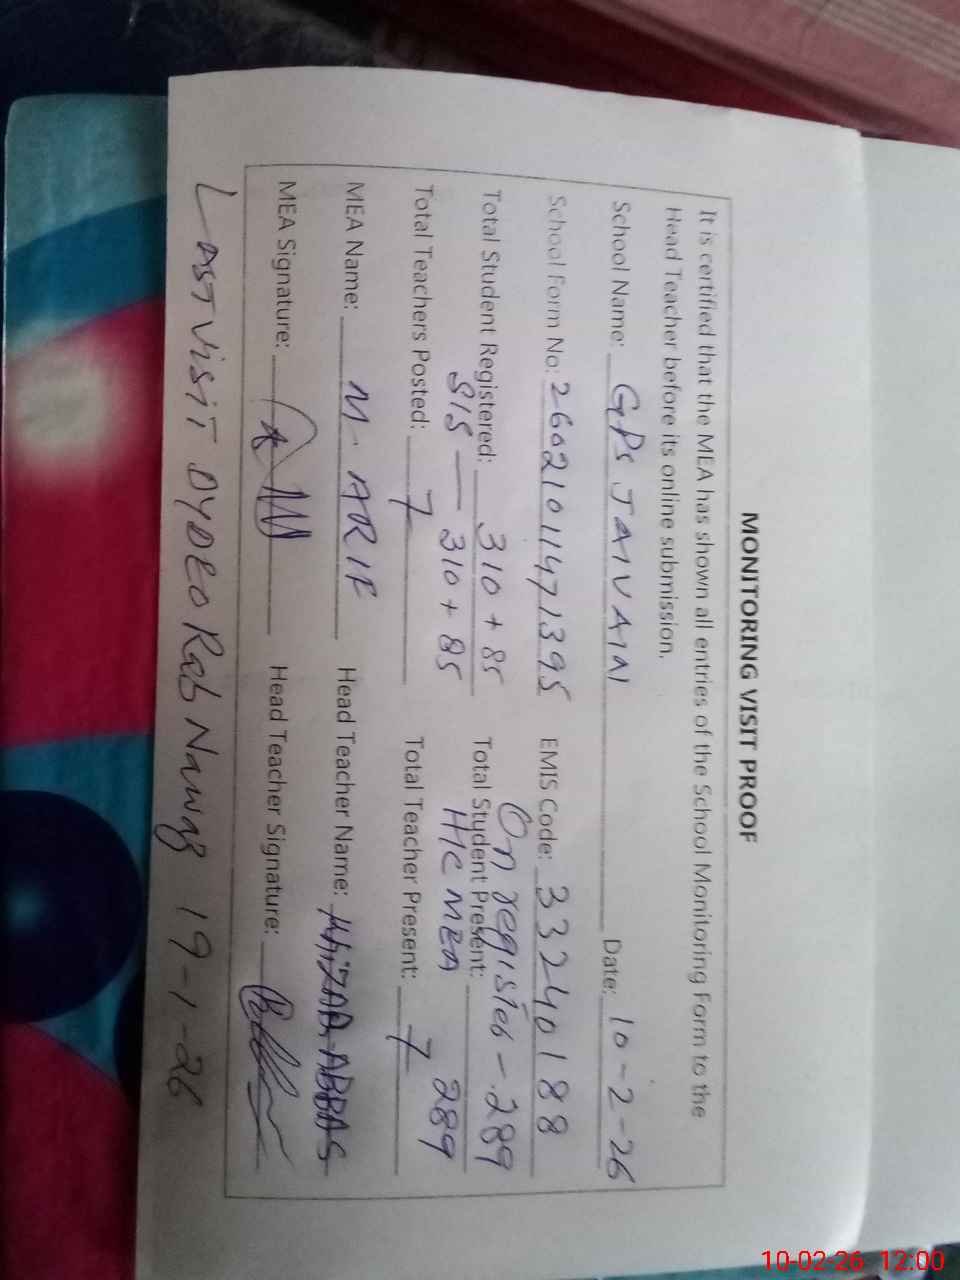 MONITORING VISIT PROOF
It is certified that the MEA has shown all entries of the School Monitoring Form to the
Head Teacher before its online submission.
School Name: GPS JAIVAIN Date: 10-2-26
School Form No: 2602101147 1395 EMIS Code: 33240188
On register - 289
Total Student Registered: 310 + 85 Total Student Present:
SIS — 310 + 85 HC MEA 289
Total Teachers Posted: 7 Total Teacher Present: 7
MEA Name: M. ARIF Head Teacher Name: ABBAS
MEA Signature: Head Teacher Signature:
LAST VISIT DYDEO Rab Nawaz 19-1-26
10-02-26 12:00